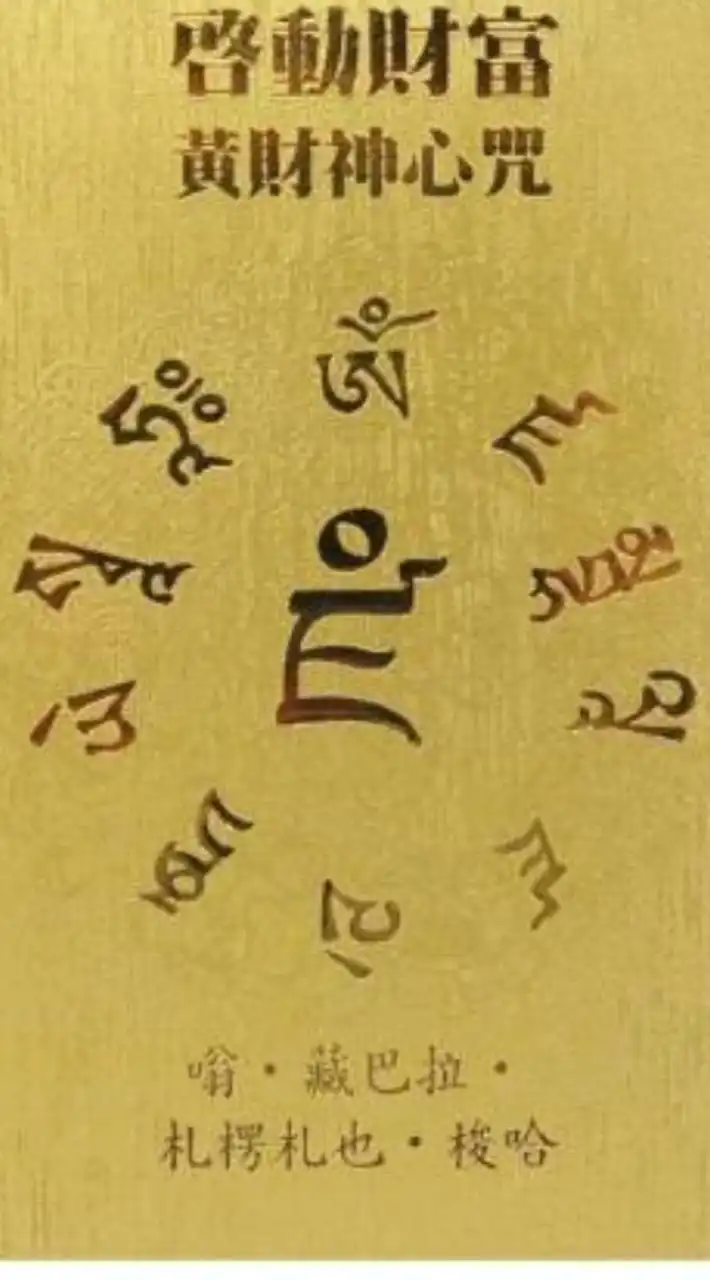 啓動財富
黃財神心咒
ཨོཾ
ཛ
ཛ
ལེ
ཡེ
སྭཱ
ཛཾ
嗡・藏巴拉・
札楞札也・梭哈